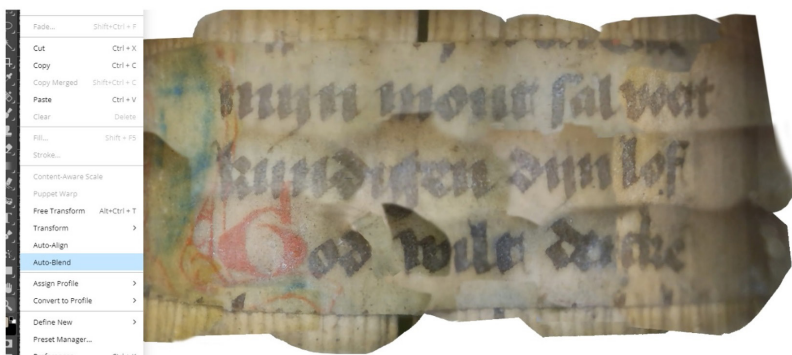 Fade... Shift+Ctrl + F
Cut Ctrl + X
Copy Ctrl + C
Copy Merged Shift+Ctrl + C
Paste Ctrl + V
Clear Delete
Fill... Shift + F5
Stroke...
Content-Aware Scale
Puppet Warp
Free Transform Alt+Ctrl + T
Transform
Auto-Align
Auto-Blend
Assign Profile
Convert to Profile
Define New
Preset Manager...
mijn mont sal
kundigen dijn lof
God wilt